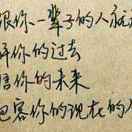 跟你一辈子的人就
解你的过去
信你的未来
包容你的现在的